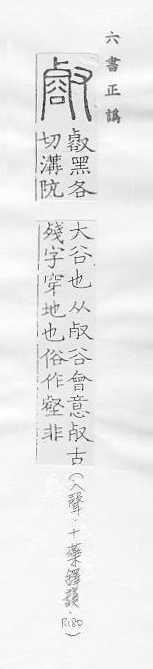 六書正譌
㕡
㕡黑各
切溝阬
大谷也从𣦻谷會意𣦻古
殘字穿地也俗作壑非
(入聲．十藥鐸韻．P.180)